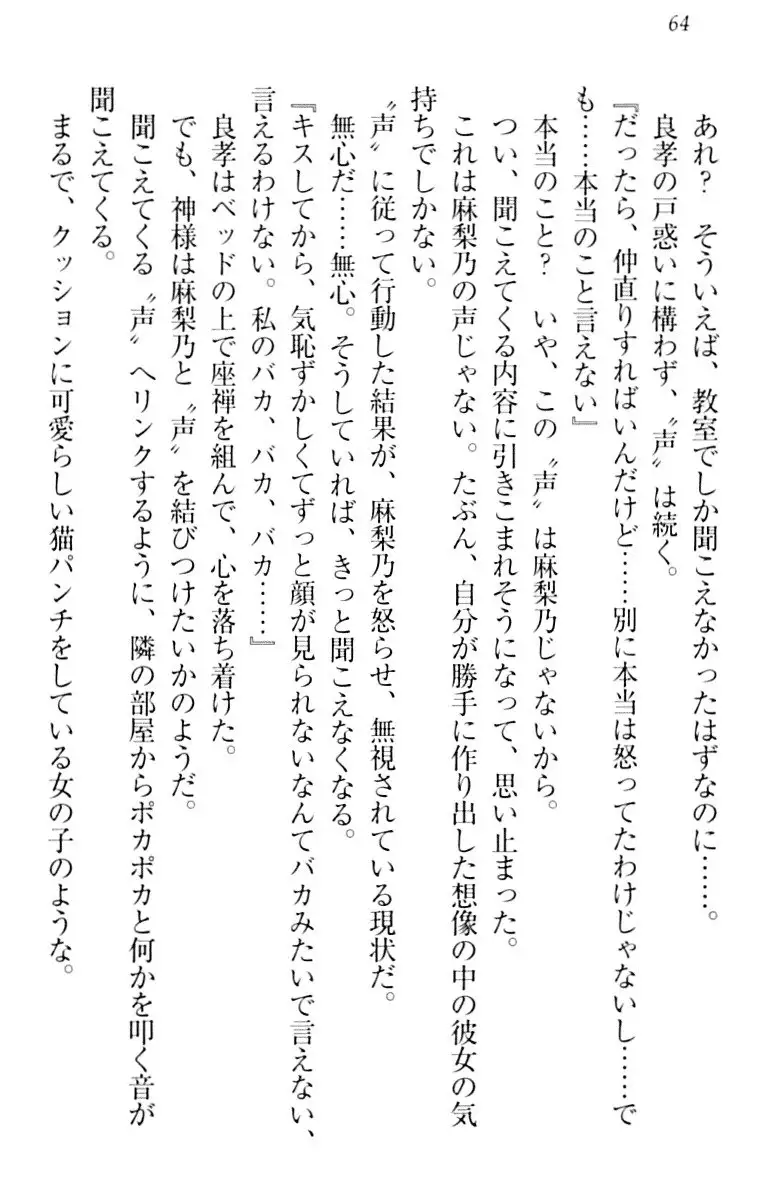 64
あれ？　そういえば、教室でしか聞こえなかったはずなのに……。
良孝の戸惑いに構わず、〝声〟は続く。
『だったら、仲直りすればいんだけど……別に本当は怒ってたわけじゃないし……で
も……本当のこと言えない』
本当のこと？　いや、この〝声〟は麻梨乃じゃないから。
つい、聞こえてくる内容に引きこまれそうになって、思い止まった。
これは麻梨乃の声じゃない。たぶん、自分が勝手に作り出した想像の中の彼女の気
持ちでしかない。
〝声〟に従って行動した結果が、麻梨乃を怒らせ、無視されている現状だ。
無心だ……無心。そうしていれば、きっと聞こえなくなる。
『キスしてから、気恥ずかしくてずっと顔が見られないなんてバカみたいで言えない、
言えるわけない。私のバカ、バカ、バカ……』
良孝はベッドの上で座禅を組んで、心を落ち着けた。
でも、神様は麻梨乃と〝声〟を結びつけたいかのようだ。
聞こえてくる〝声〟へリンクするように、隣の部屋からポカポカと何かを叩く音が
聞こえてくる。
まるで、クッションに可愛らしい猫パンチをしている女の子のような。